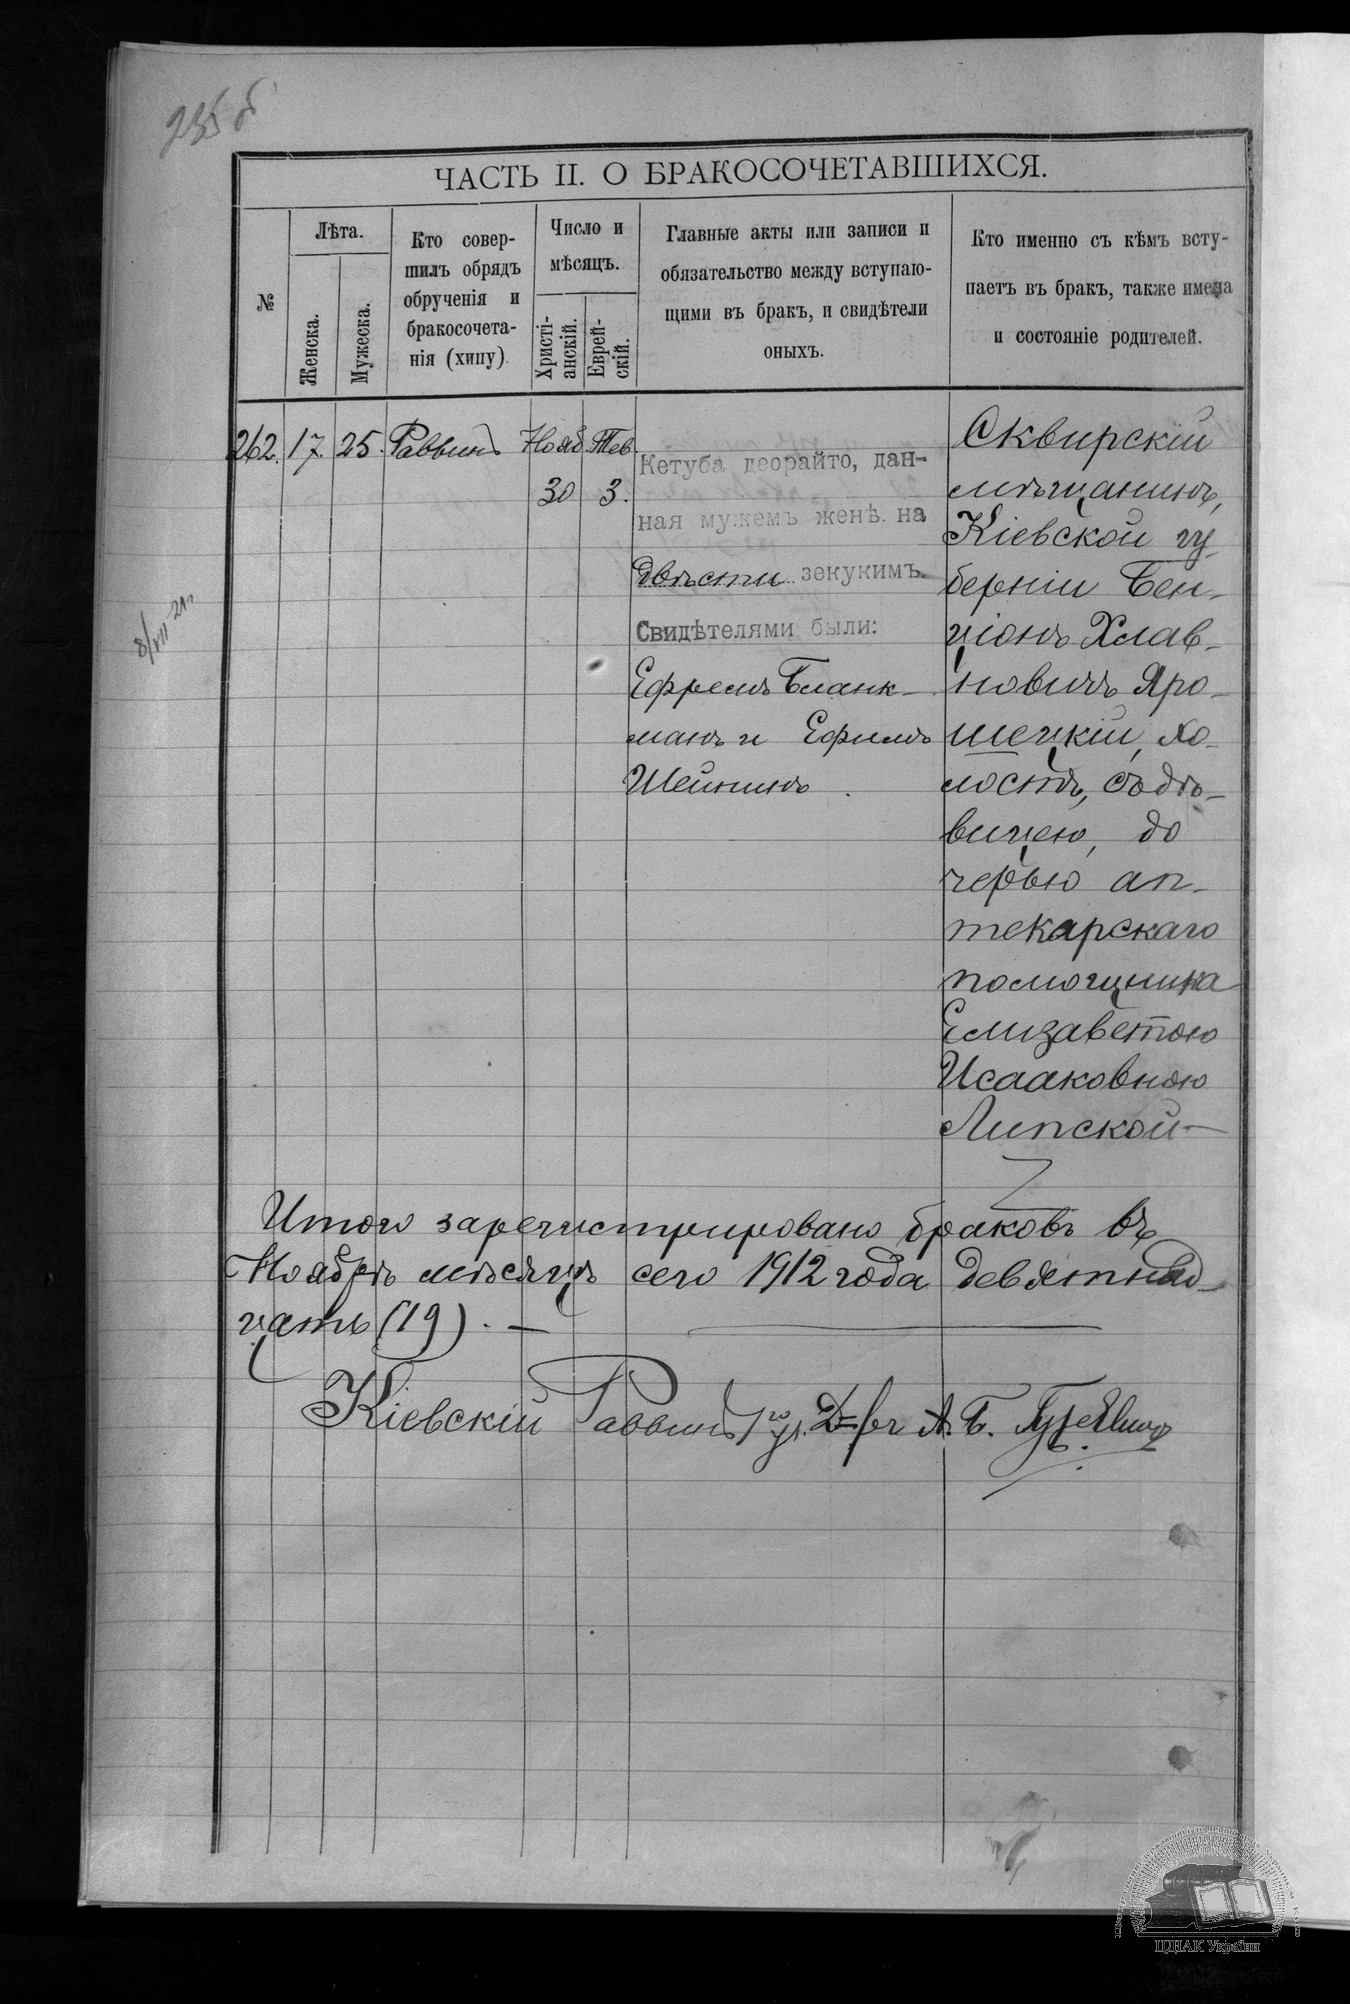 235 б
ЧАСТЬ II. О БРАКОСОЧЕТАВШИХСЯ.
№
Лѣта.
Женска.
Мужеска.
Кто совер-
шилъ обрядъ
обрученія и
бракосочета-
нія (хипу)
Число и
мѣсяцъ.
Христі-
анскій.
Еврей-
скій.
Главные акты или записи и
обязательство между вступаю-
щими въ бракъ, и свидѣтели
оныхъ.
Кто именно съ кѣмъ всту-
паетъ въ бракъ, также имена
и состояніе родителей.
262. 17. 25. Раввинъ Нояб. Тев.
30 3.
Кетуба деорайто, дан-
ная мужемъ женѣ на
двѣсти зекукимъ.
Свидѣтелями были:
Ефремъ Бланк-
манъ и Ефимъ
Шейнинъ.
Сквирскій
мѣщанинъ,
Кіевской гу-
берніи Бен-
ціонъ Хлав-
новичъ Яро-
шецкій, хо-
лостъ, съ дѣ-
вицею, до
черью ап-
текарскаго
помощника
Елизаветою
Исааковною
Липской
8/VII 21 г.
Итого зарегистрировано браковъ въ
Ноябрѣ мѣсяцѣ сего 1912 года девятнад-
цать (19). —
Кіевскій Раввинъ 1го уч. А. Б. Гуревичъ
ЦДІАК України